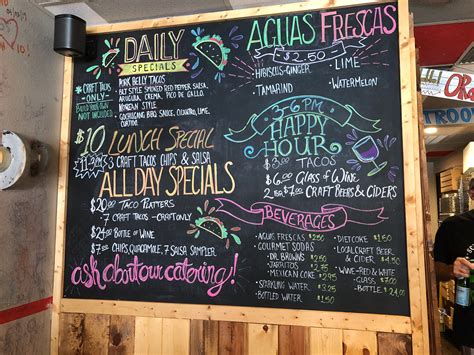 DAILY
SPECIALS
*CRAFT TACOS
-ONLY-
BUILD YOUR OWN
NOT INCLUDED
PORK BELLY TACOS
- BLT STYLE SMOKED RED PEPPER SALSA,
ARUGULA, CREMA, PICO DE GALLO.
- KOREAN STYLE
GOCHUJANG BBQ SAUCE, CILANTRO, LIME,
$10 LUNCH SPECIAL
CRAFT TACOS CHIPS & SALSA
ALL DAY SPECIALS
$20.00 TACO PLATTERS
7 CRAFT TACOS - CRAFT ONLY
$24.00 BOTTLE OF WINE
$7.00 CHIPS GUACAMOLE, 7 SALSA SAMPLER.
ask about our catering!
AGUAS FRESCAS
$2.50
- HIBISCUS-GINGER
- LIME
- TAMARIND
- WATERMELON
3-6 PM
HAPPY
HOUR
TACOS
$6.00 GLASS OF WINE
CRAFT BEERS & CIDERS
BEVERAGES
- AGUAS FRESCAS $2.50
- GOURMET SODAS
- DR. BROWNS $2.50
- JARRITOS $2.75
- MEXICAN COKE $2.95
- SPARKLING WATER $2.50
- BOTTLED WATER $1.50
- DIET COKE $1.50
- LOCAL CRAFT BEER
& CIDER $4.50
- WINE-RED & WHITE
- GLASS $7.00
- BOTTLE $24.00
TROO